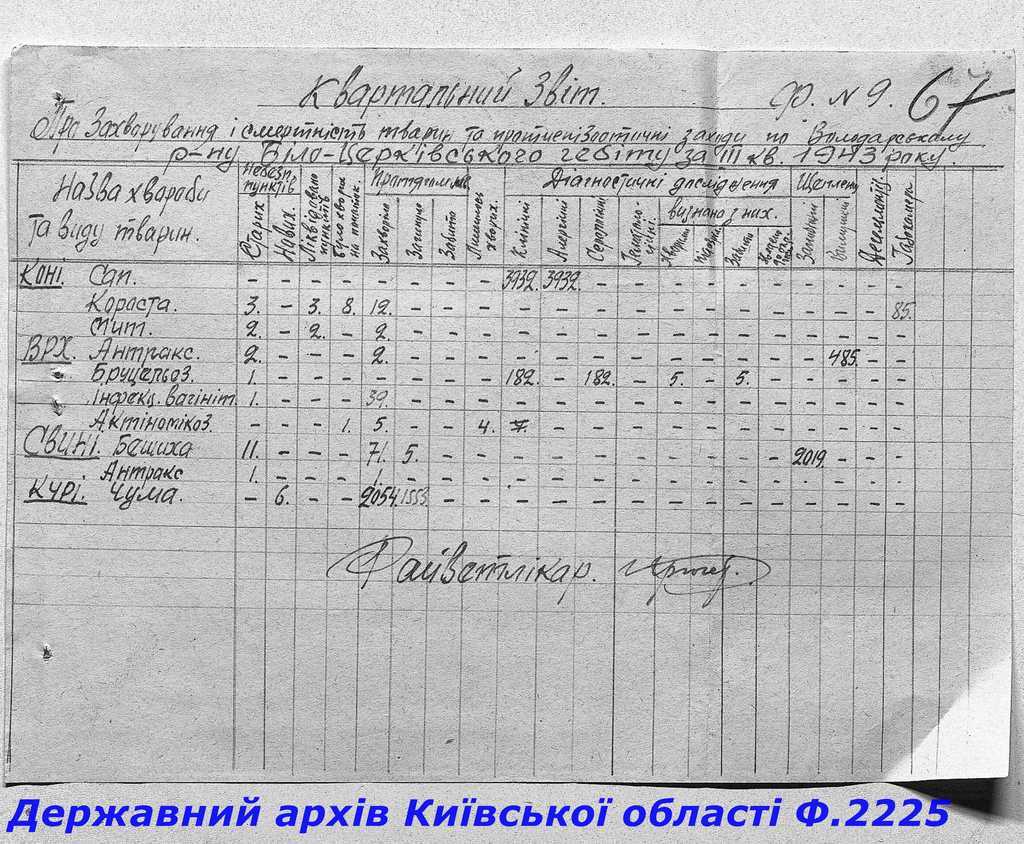 Квартальний Звіт. Ф. N 9. 67
Про Захворування і смертність тварин та протиепізоотичні заходи по Володарському
р-ну Біло-Церківського гебіту за III кв. 1943 року.
Назва хвороби та виду тварин. Небезп. пунктів Діагностичні дослідження Щеплено
визнано з них.
Старих Нових. Ліквідовано пунктів було хворих на початк. Захворіло Загинуло Забито Лишилось хворих. Клінічні Алергічні
Коні. Сап. - - - - - - - - 3932. 3932. - - - - - - - - - -
Короста. 3. - 3. 8. 12. - - - - - - - - - - - - - - 85.
Мит. 2. - 2. - 2. - - - - - - - - - - - - - - -
ВРХ. Антракс. 2. - - - 2. - - - - - - - - - - - - 485. - -
Бруцельоз. 1. - - - - - - - 182. - 182. - 5. - 5. - - - - -
Інфекц. вагініт. 1. - - - 39. - - - - - - - - - - - - - - -
Актіномікоз. - - - 1. 5. - - 4. 7. - - - - - - - - - - -
Свині. Бешиха 11. - - - 71. 5. - - - - - - - - - - 2019. - - -
Антракс 1. - - - 1. - - - - - - - - - - - - - - -
Курі. Чума. - 6. - - 2054. 1553. - - - - - - - - - - - - - -
Райветлікар.
Державний архів Київської області Ф.2225